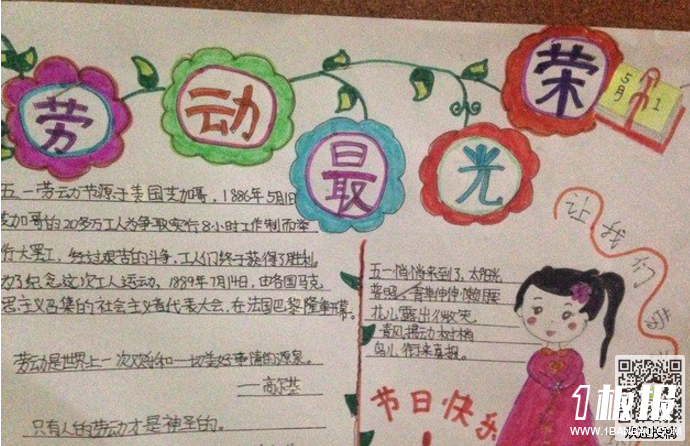 劳动最光荣
5月1
五一劳动节源于美国芝加哥,1886年5月1日
芝加哥的20多万工人为争取实行8小时工作制而举
行大罢工,经过艰苦的斗争,工人们终于获得了胜利
为了纪念这次工人运动,1889年7月14日,由各国马克
思主义召集的社会主义者代表大会,在法国巴黎隆重开幕。
劳动是世界上一次欢乐和一切美好事情的源泉。
——高尔基
只有人的劳动才是神圣的。
五一悄悄来到了,太阳光
普照
花儿露出微笑
青风摇动树梢
鸟儿衔来喜报。
节日快乐
让我们
1板报
WWW.1BANBAO.COM